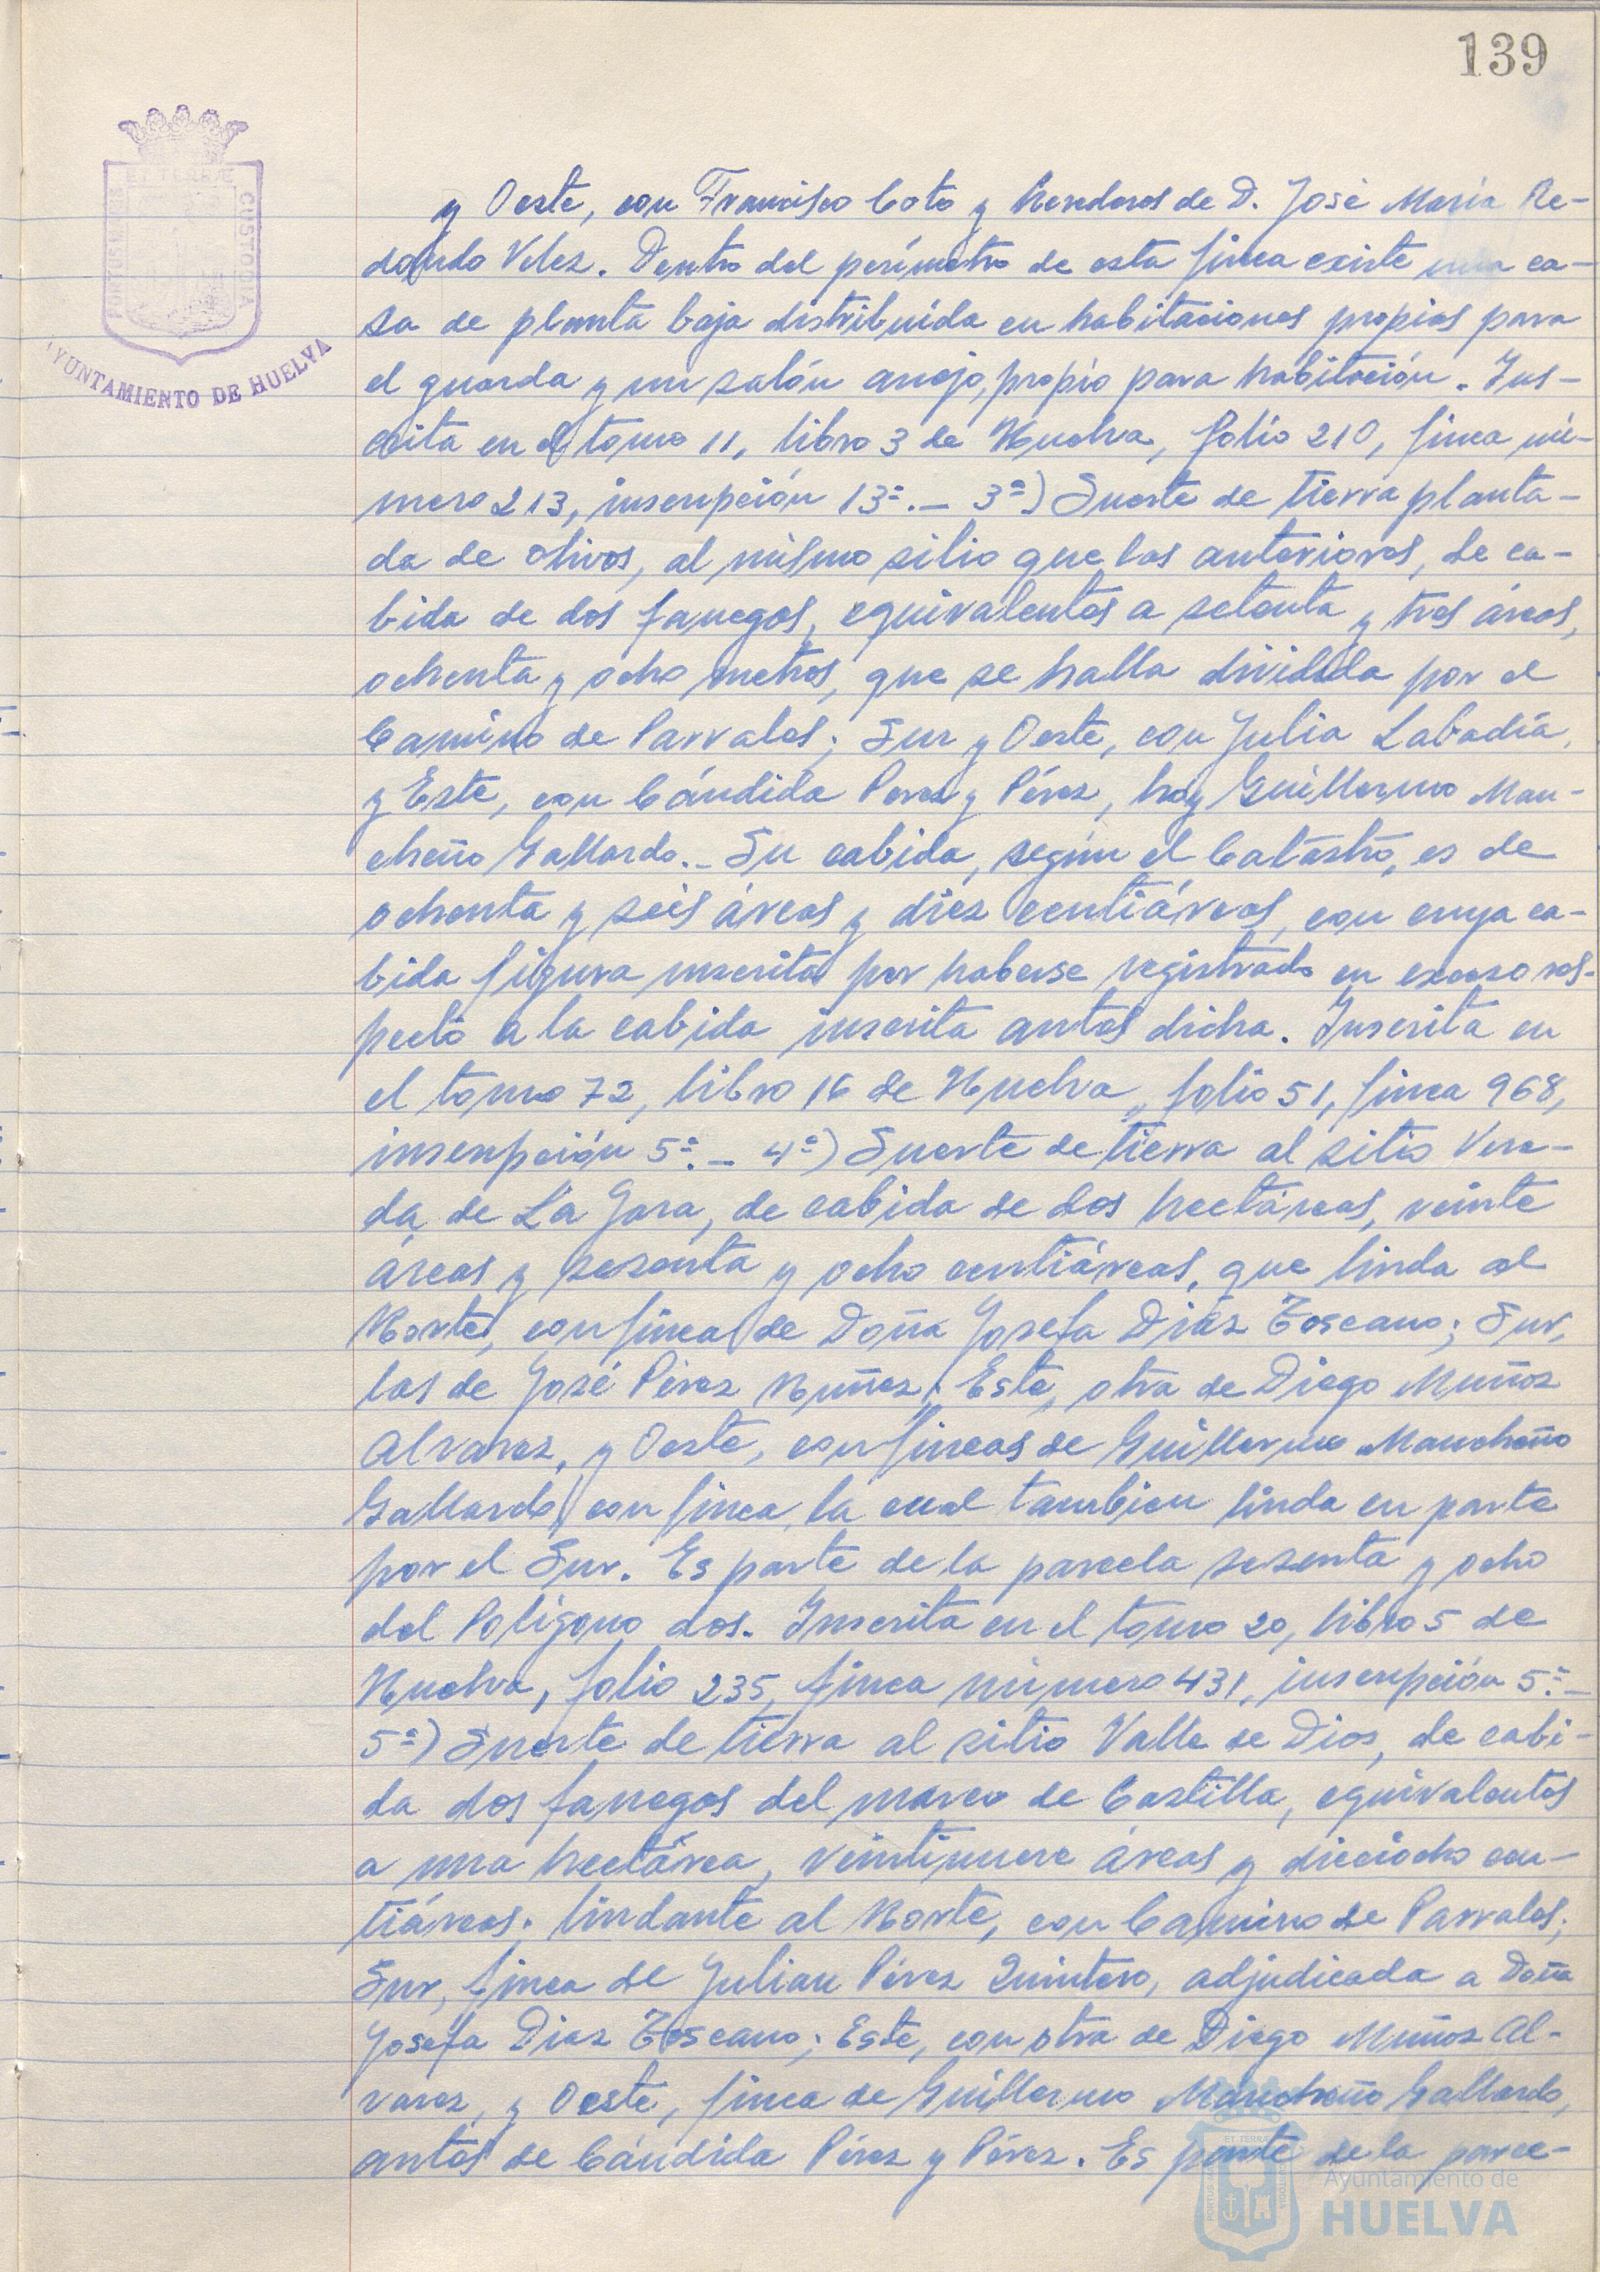 139
ET TERRAE
PORTUS MARIS
CUSTODIA
AYUNTAMIENTO DE HUELVA
y Oeste, con Francisco Coto y herederos de D. José María Re-
dondo Velez. Dentro del perímetro de esta finca existe una ca-
sa de planta baja distribuída en habitaciones propias para
el guarda y un salón anejo, propio para habitación. Ins-
crita en el tomo 11, libro 3 de Huelva, folio 210, finca nú-
mero 213, inscripción 13ª.- 3ª) Suerte de tierra planta-
da de olivos, al mismo sitio que las anteriores, de ca-
bida de dos fanegas, equivalentes a setenta y tres áreas,
ochenta y ocho metros, que se halla dividida por el
Camino de Parrales; Sur y Oeste, con Julia Labadía,
y Este, con Cándida Perez y Pérez, hoy Guillermo Man-
cheño Gallardo.- Su cabida, según el Catastro, es de
ochenta y seis áreas y diez centiáreas, con cuya ca-
bida figura inscrita por haberse registrado en exceso res-
pecto a la cabida inscrita antes dicha. Inscrita en
el tomo 72, libro 16 de Huelva, folio 51, finca 968,
inscripción 5ª.- 4ª) Suerte de tierra al sitio Vere-
da de La Jara, de cabida de dos hectáreas, veinte
áreas y sesenta y ocho centiáreas, que linda al
Norte, con finca de Doña Josefa Diáz Toscano; Sur,
las de José Pérez Nuñez; Este, otra de Diego Muñoz
Alvarez, y Oeste, con fincas de Guillermo Mancheño
Gallardo, con finca, la cual tambien linda en parte
por el Sur. Es parte de la parcela sesenta y ocho
del Poligono dos. Inscrita en el tomo 20, libro 5 de
Huelva, folio 235, finca número 431, inscripción 5ª.-
5ª) Suerte de tierra al sitio Valle de Dios, de cabi-
da dos fanegas del marco de Castilla, equivalentes
a una hectárea, veintinueve áreas y dieciocho cen-
tiáreas; lindante al Norte, con Camino de Parrales;
Sur, finca de Julian Pérez Quintero, adjudicada a Doña
Josefa Diaz Toscano; Este, con otra de Diego Muñoz Al-
varez, y Oeste, finca de Guillermo Mancheño Gallardo,
antes de Cándida Pérez y Pérez. Es parte de la parce-
Ayuntamiento de
HUELVA